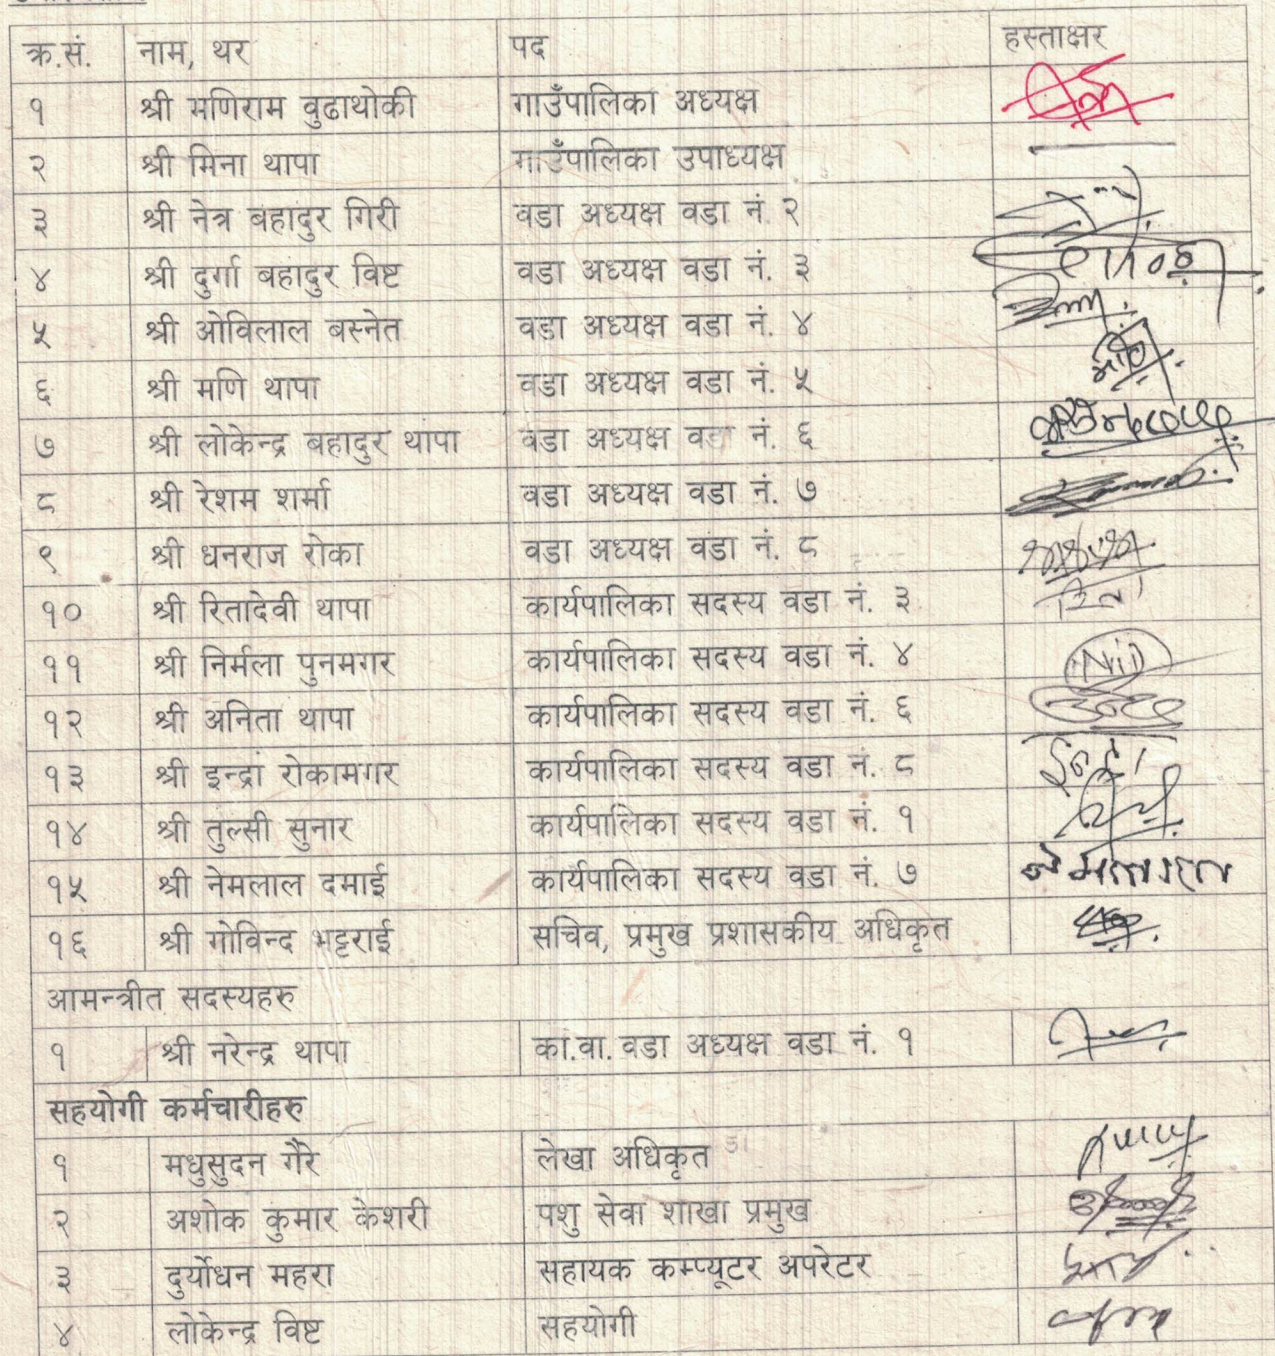 क्र.सं. नाम, थर पद हस्ताक्षर
१ श्री मणिराम वुढाथोकी गाउँपालिका अध्यक्ष
२ श्री मिना थापा गाउँपालिका उपाध्यक्ष
३ श्री नेत्र बहादुर गिरी वडा अध्यक्ष वडा नं. २
४ श्री दुर्गा बहादुर विष्ट वडा अध्यक्ष वडा नं. ३
५ श्री ओविलाल बस्नेत वडा अध्यक्ष वडा नं. ४
६ श्री मणि थापा वडा अध्यक्ष वडा नं. ५
७ श्री लोकेन्द्र बहादुर थापा वडा अध्यक्ष वडा नं. ६
८ श्री रेशम शर्मा वडा अध्यक्ष वडा नं. ७
९ श्री धनराज रोका वडा अध्यक्ष वडा नं. ८
१० श्री रितादेवी थापा कार्यपालिका सदस्य वडा नं. ३
११ श्री निर्मला पुनमगर कार्यपालिका सदस्य वडा नं. ४
१२ श्री अनिता थापा कार्यपालिका सदस्य वडा नं. ६
१३ श्री इन्द्रा रोकामगर कार्यपालिका सदस्य वडा नं. ८
१४ श्री तुल्सी सुनार कार्यपालिका सदस्य वडा नं. १
१५ श्री नेमलाल दमाई कार्यपालिका सदस्य वडा नं. ७
१६ श्री गोविन्द भट्टराई सचिव, प्रमुख प्रशासकीय अधिकृत
आमन्त्रीत सदस्यहरु
१ श्री नरेन्द्र थापा का.वा. वडा अध्यक्ष वडा नं. १
सहयोगी कर्मचारीहरु
१ मधुसुदन गैरे लेखा अधिकृत
२ अशोक कुमार केशरी पशु सेवा शाखा प्रमुख
३ दुर्योधन महरा सहायक कम्प्यूटर अपरेटर
४ लोकेन्द्र विष्ट सहयोगी